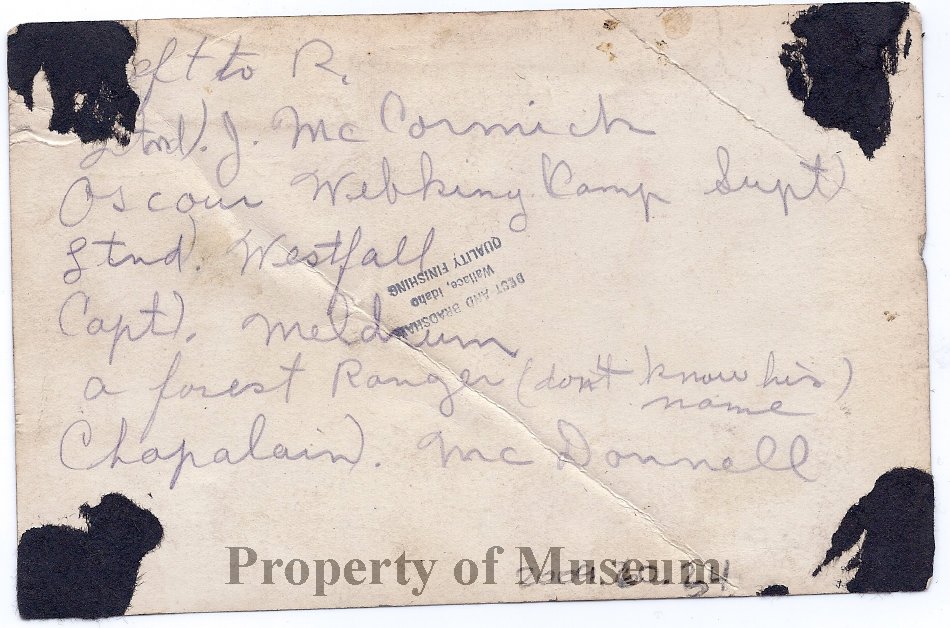 eft to R.
Ltnd. J. McCormick
Oscour Webking Camp Supt
Ltnd. Westfall
Capt. Meldrum
a forest Ranger (don't know his)
name
Chapalain. McDonnell
BEST AND BRADSHAW
Wallace, Idaho
QUALITY FINISHING
Property of Museum